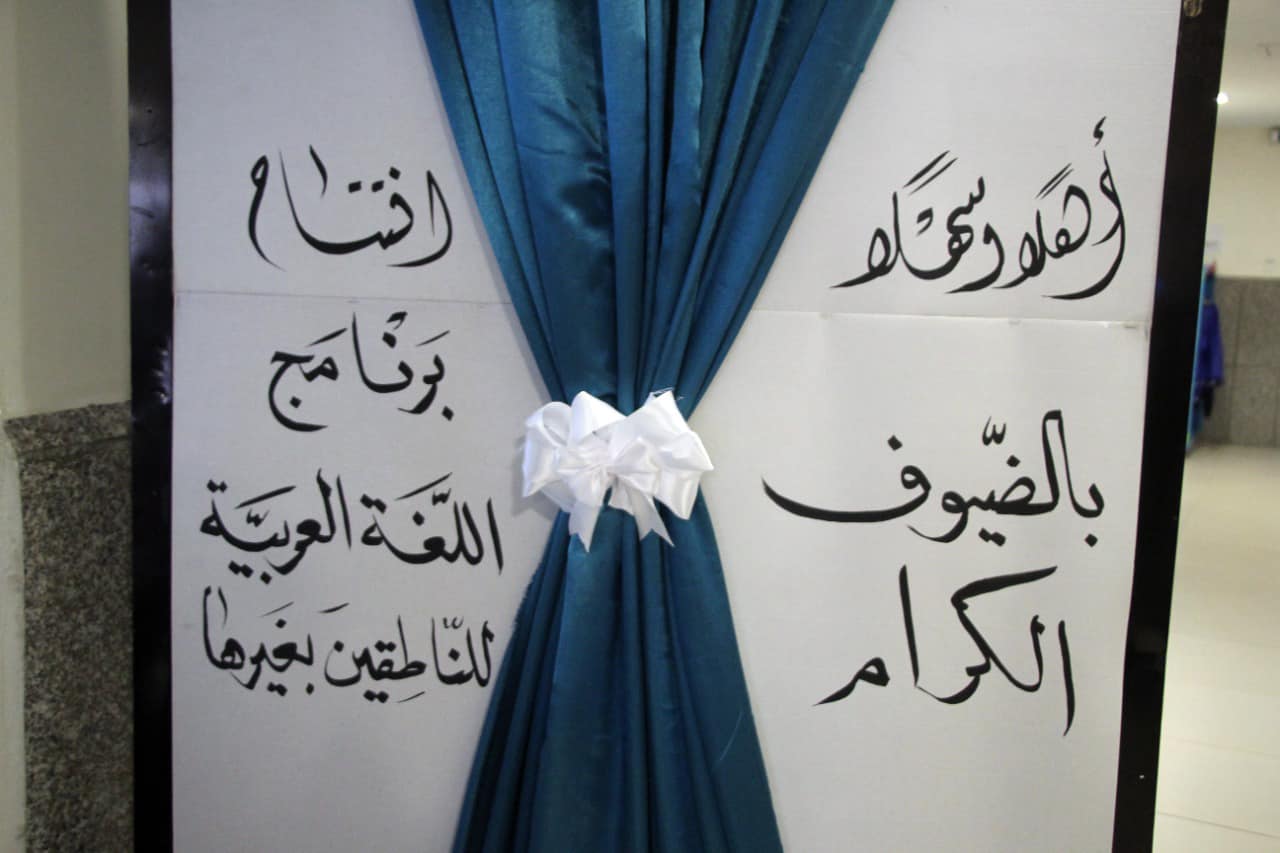 أهلًا وسهلًا
بالضّيوف
الكرام
افتتاح
بَرنَامَج
اللّغَة العَربيَّة
للنّاطِقينَ بغَيرها